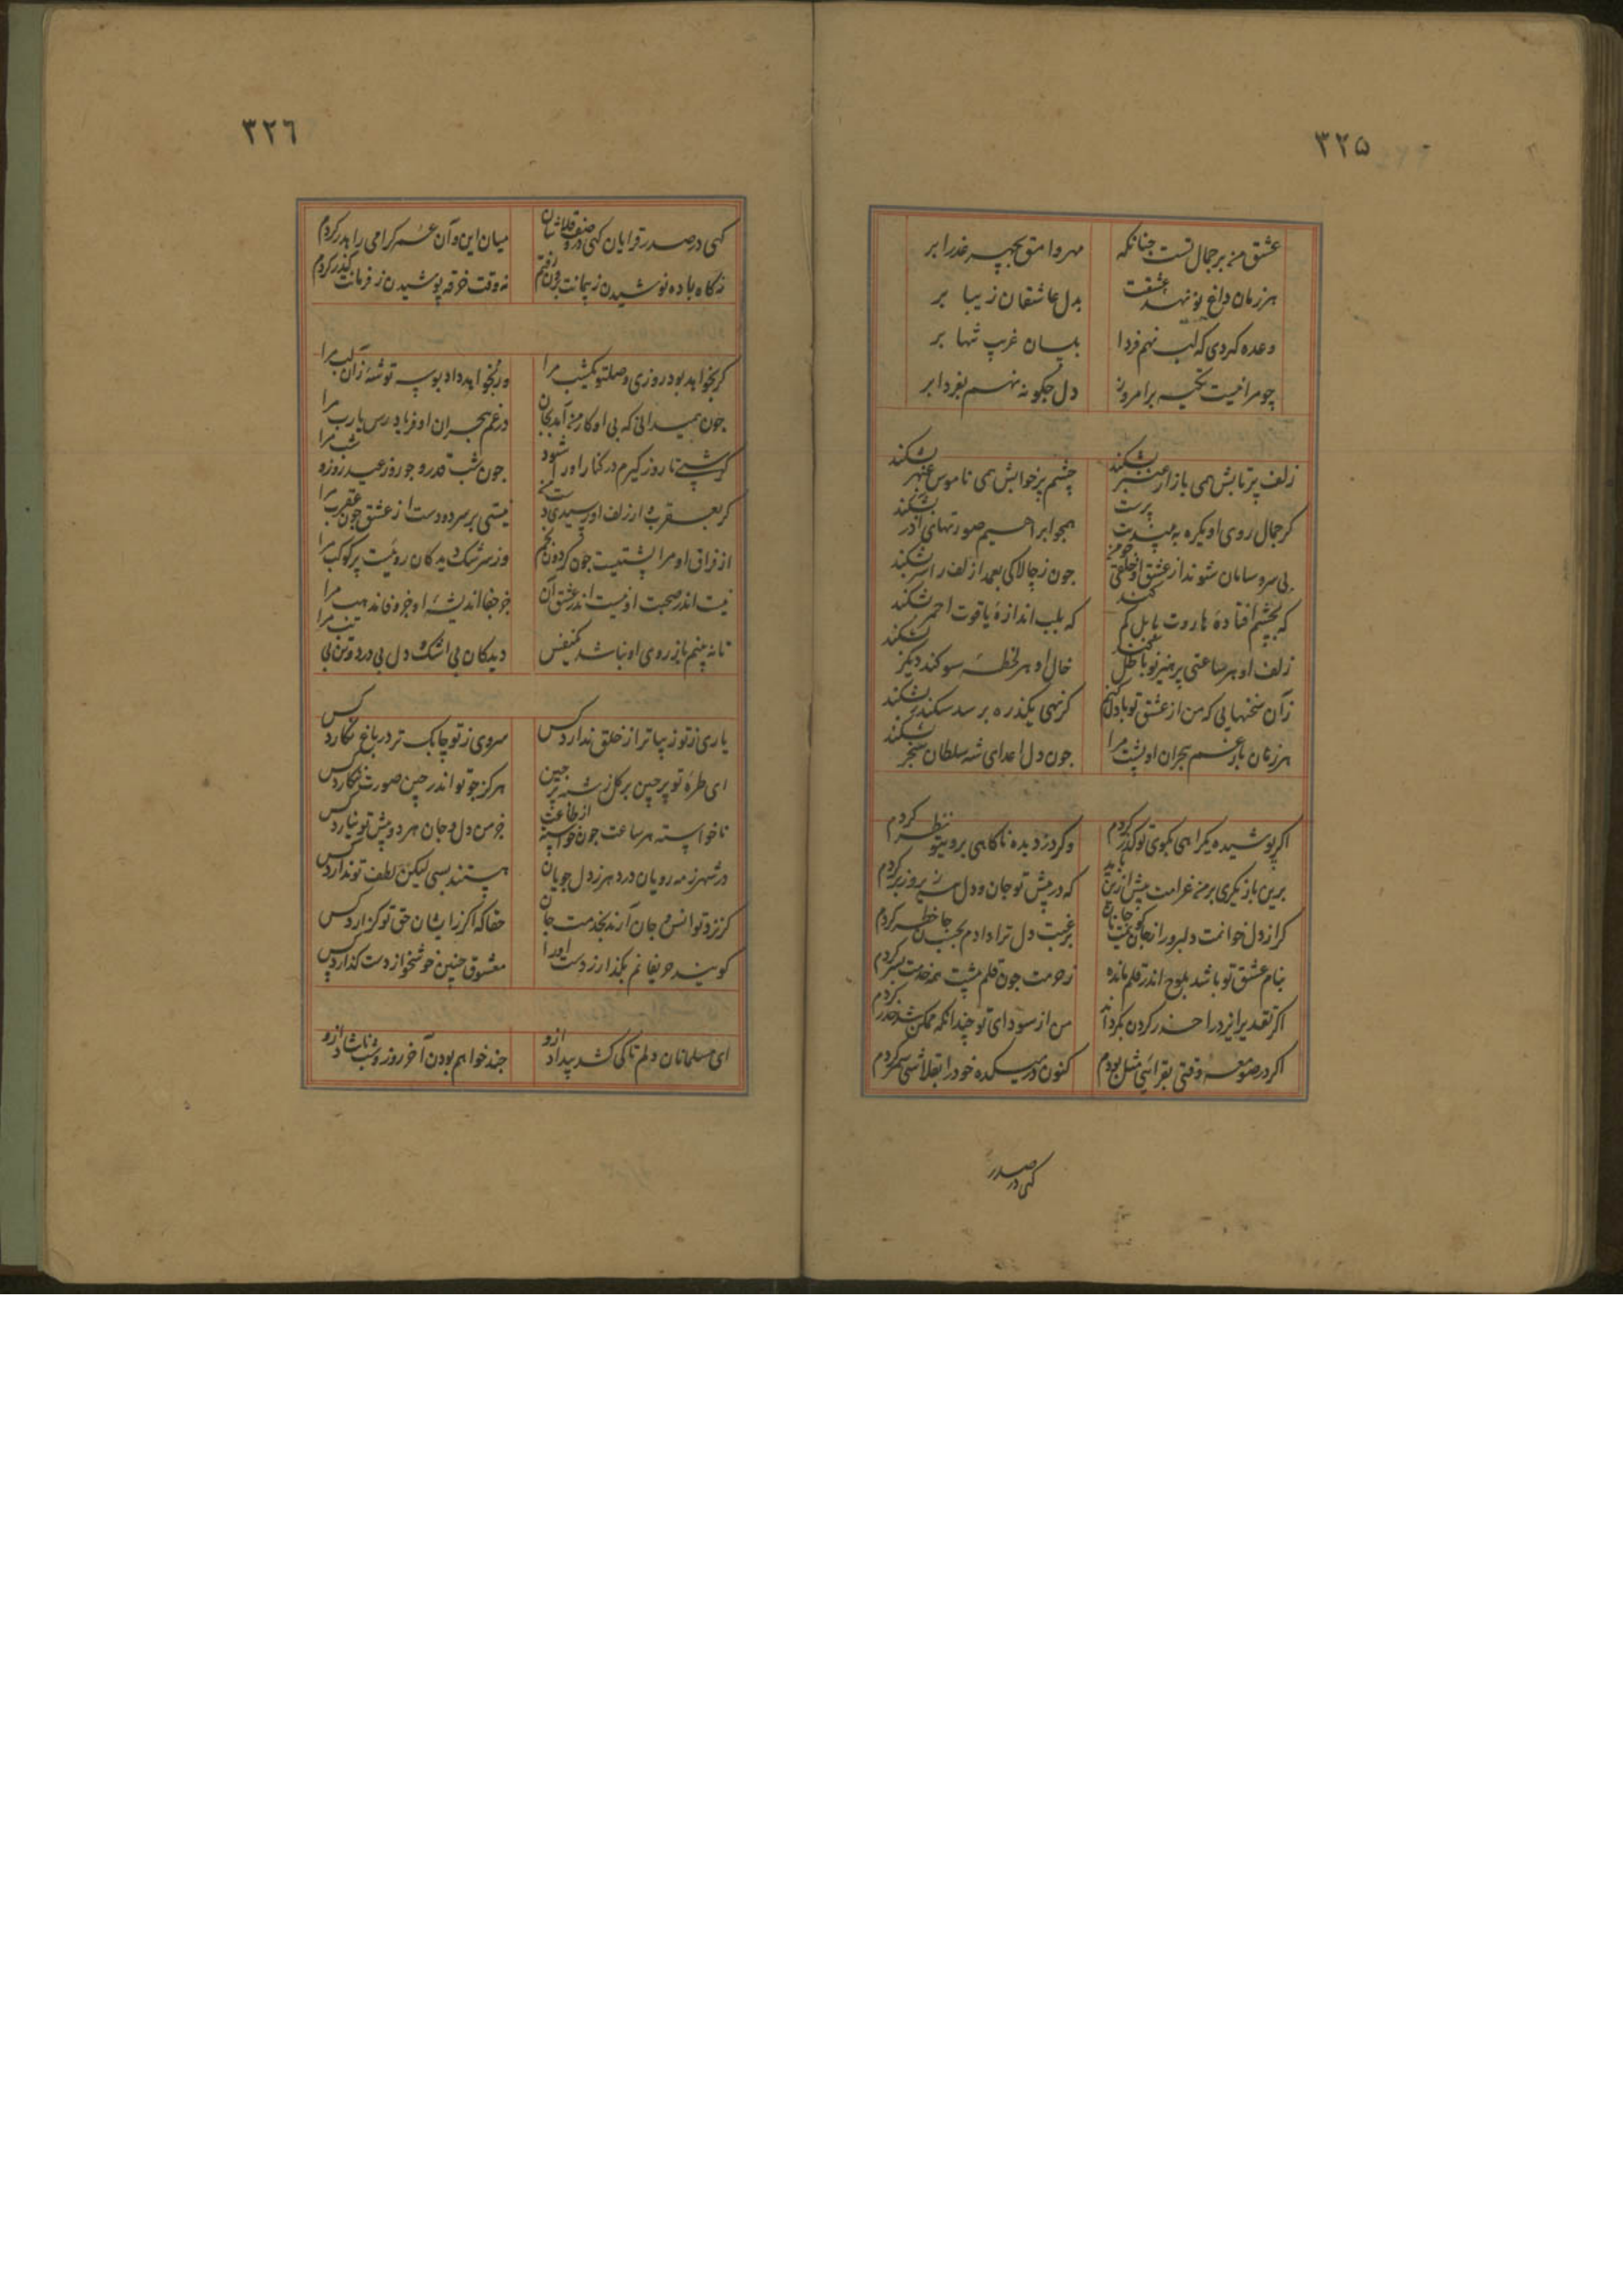 ۳۲۵
عشق من بر جمال تست چنانکه مهر وامق بچهر عذرا بر
هر زمان داغ نو نهد عشقت بدل عاشقان زیبا بر
وعده کردی که لب نهم فردا بلبان غریب تنها بر
چو مرا نیست تکیه بر امروز دل چکونه نهم بفردا بر
زلف پرتابش همی بازار عنبر بشکند چشم پرخوابش همی ناموس عبهر بشکند
کر جمال روی او یکره به بیند بت پرست همچو ابراهیم صورتهای آذر بشکند
بی سر و سامان شوند از عشق او خلقی چو من چون ز چالاکی بعمدا زلف را سر بشکند
که بچشم افتادهٔ هاروت بابل کم کند که بلب اندازهٔ یاقوت احمر بشکند
زلف او هر ساعتی پرهیز نو باطل کند خال او هر لحظهٔ سوکند دیکر بشکند
زآن سخنهایی که من از عشق تو با دل کنم کر نهی یکذره بر سد سکندر بشکند
هر زمان بار غم هجران او پشت مرا چون دل اعدای شه سلطان سنجر بشکند
اکر پوشیده یکراهی بکوی تو کذر کردم وکر دزدیده ناکاهی بروی تو نظر کردم
برین باز یکری بر من غرامت بیش ازین باید که در پیش تو جان و دل زیر و زبر کردم
کر از دل خوانمت دلبر ور از جان کویمت جانان برغبت دل ترا دادم جان خطر کردم
بنام عشق تو باشد بلوح اندر قلم مانده ز حرمت چون قلم پیشت همه خدمت بسر کردم
اکر تقدیر ایزد را حذر کردن بکرداند من از سودای تو چندانکه ممکن شد حذر کردم
اکر در صومعه وقتی بقرائی مثل بودم کنون در میکده خود را بقلاشی سمر کردم
کهی در صدر
۳۲۶
کهی در صدر قرایان کهی در صف قلاشان میان این و آن عمر کرامی را هدر کردم
نه کاه باده نوشیدن ز پیمانت برون رفتم نه وقت خرقه پوشیدن ز فرمانت کذر کردم
کر بخواهد بود روزی وصلت یکشب مرا ور نخواهد داد بوسه توشهٔ زآن لب مرا
چون همیدانی که بی او کار من آمد بجان در غم هجران او فریاد رس یا رب مرا
کر شبی تا روز کیرم در کنار او را شود چون شب قدر و چو روز عید روز و شب مرا
کر بعقرب وار زلف او رسیدی دست من نیستی بر سر دو دست از عشق چون عقرب مرا
از فراق او مرا پشتیست چون کردون بخم وز سرشک دیدکان رویست پر کوکب مرا
نیست اندر صحبت او نیست اندر عشق آن جز جفا اندیشهٔ او جز وفا مذهب مرا
تا نه بینم باز روی او نباشد یکنفس دیدکان بی اشک و دل بی درد و تن بی تب مرا
یاری ز تو زیباتر از خلق ندارد کس سروی ز تو چابک تر در باغ نکارد کس
ای طرهٔ تو پرچین بر کل زشبه پرچین هرکز چو تو اندر چین صورت ننکارد کس
ناخواسته هر ساعت چون خواسته از طاعت جز من دل و جان هر دو پیش تو نیارد کس
در شهر ز مه رویان درد هر ز دل جویان هستند بسی لیکن لطف تو ندارد کس
کر نزد تو انس و جان آرند بخدمت جان حقا که اکر زایشان حق تو کزارد کس
کویند حریفانم بکذار ز دست او را معشوق چنین خوشخو از دست کذارد کس
ای مسلمانان دلم تا کی کشد بیداد ازو چند خواهم بودن آخر روز و شب ناشاد ازو